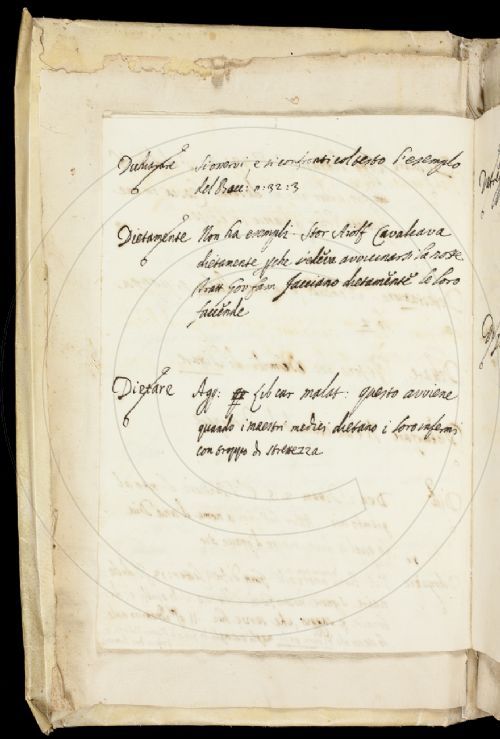 Dichiarare Si osservi, e si confronti col testo l'esempio
del Bocc: n: 32: 3
Dietamente Non ha esempli. Stor Aiolf Cavalcava
dietamente pche vedeva avvicinarsi la notte
Tratt Gov fam facciano dietamēte le loro
faccende
Dietare Agg: Lib cur malat: questo avviene
quando i maestri medici dietano i loro infermi
con troppo di strettezza